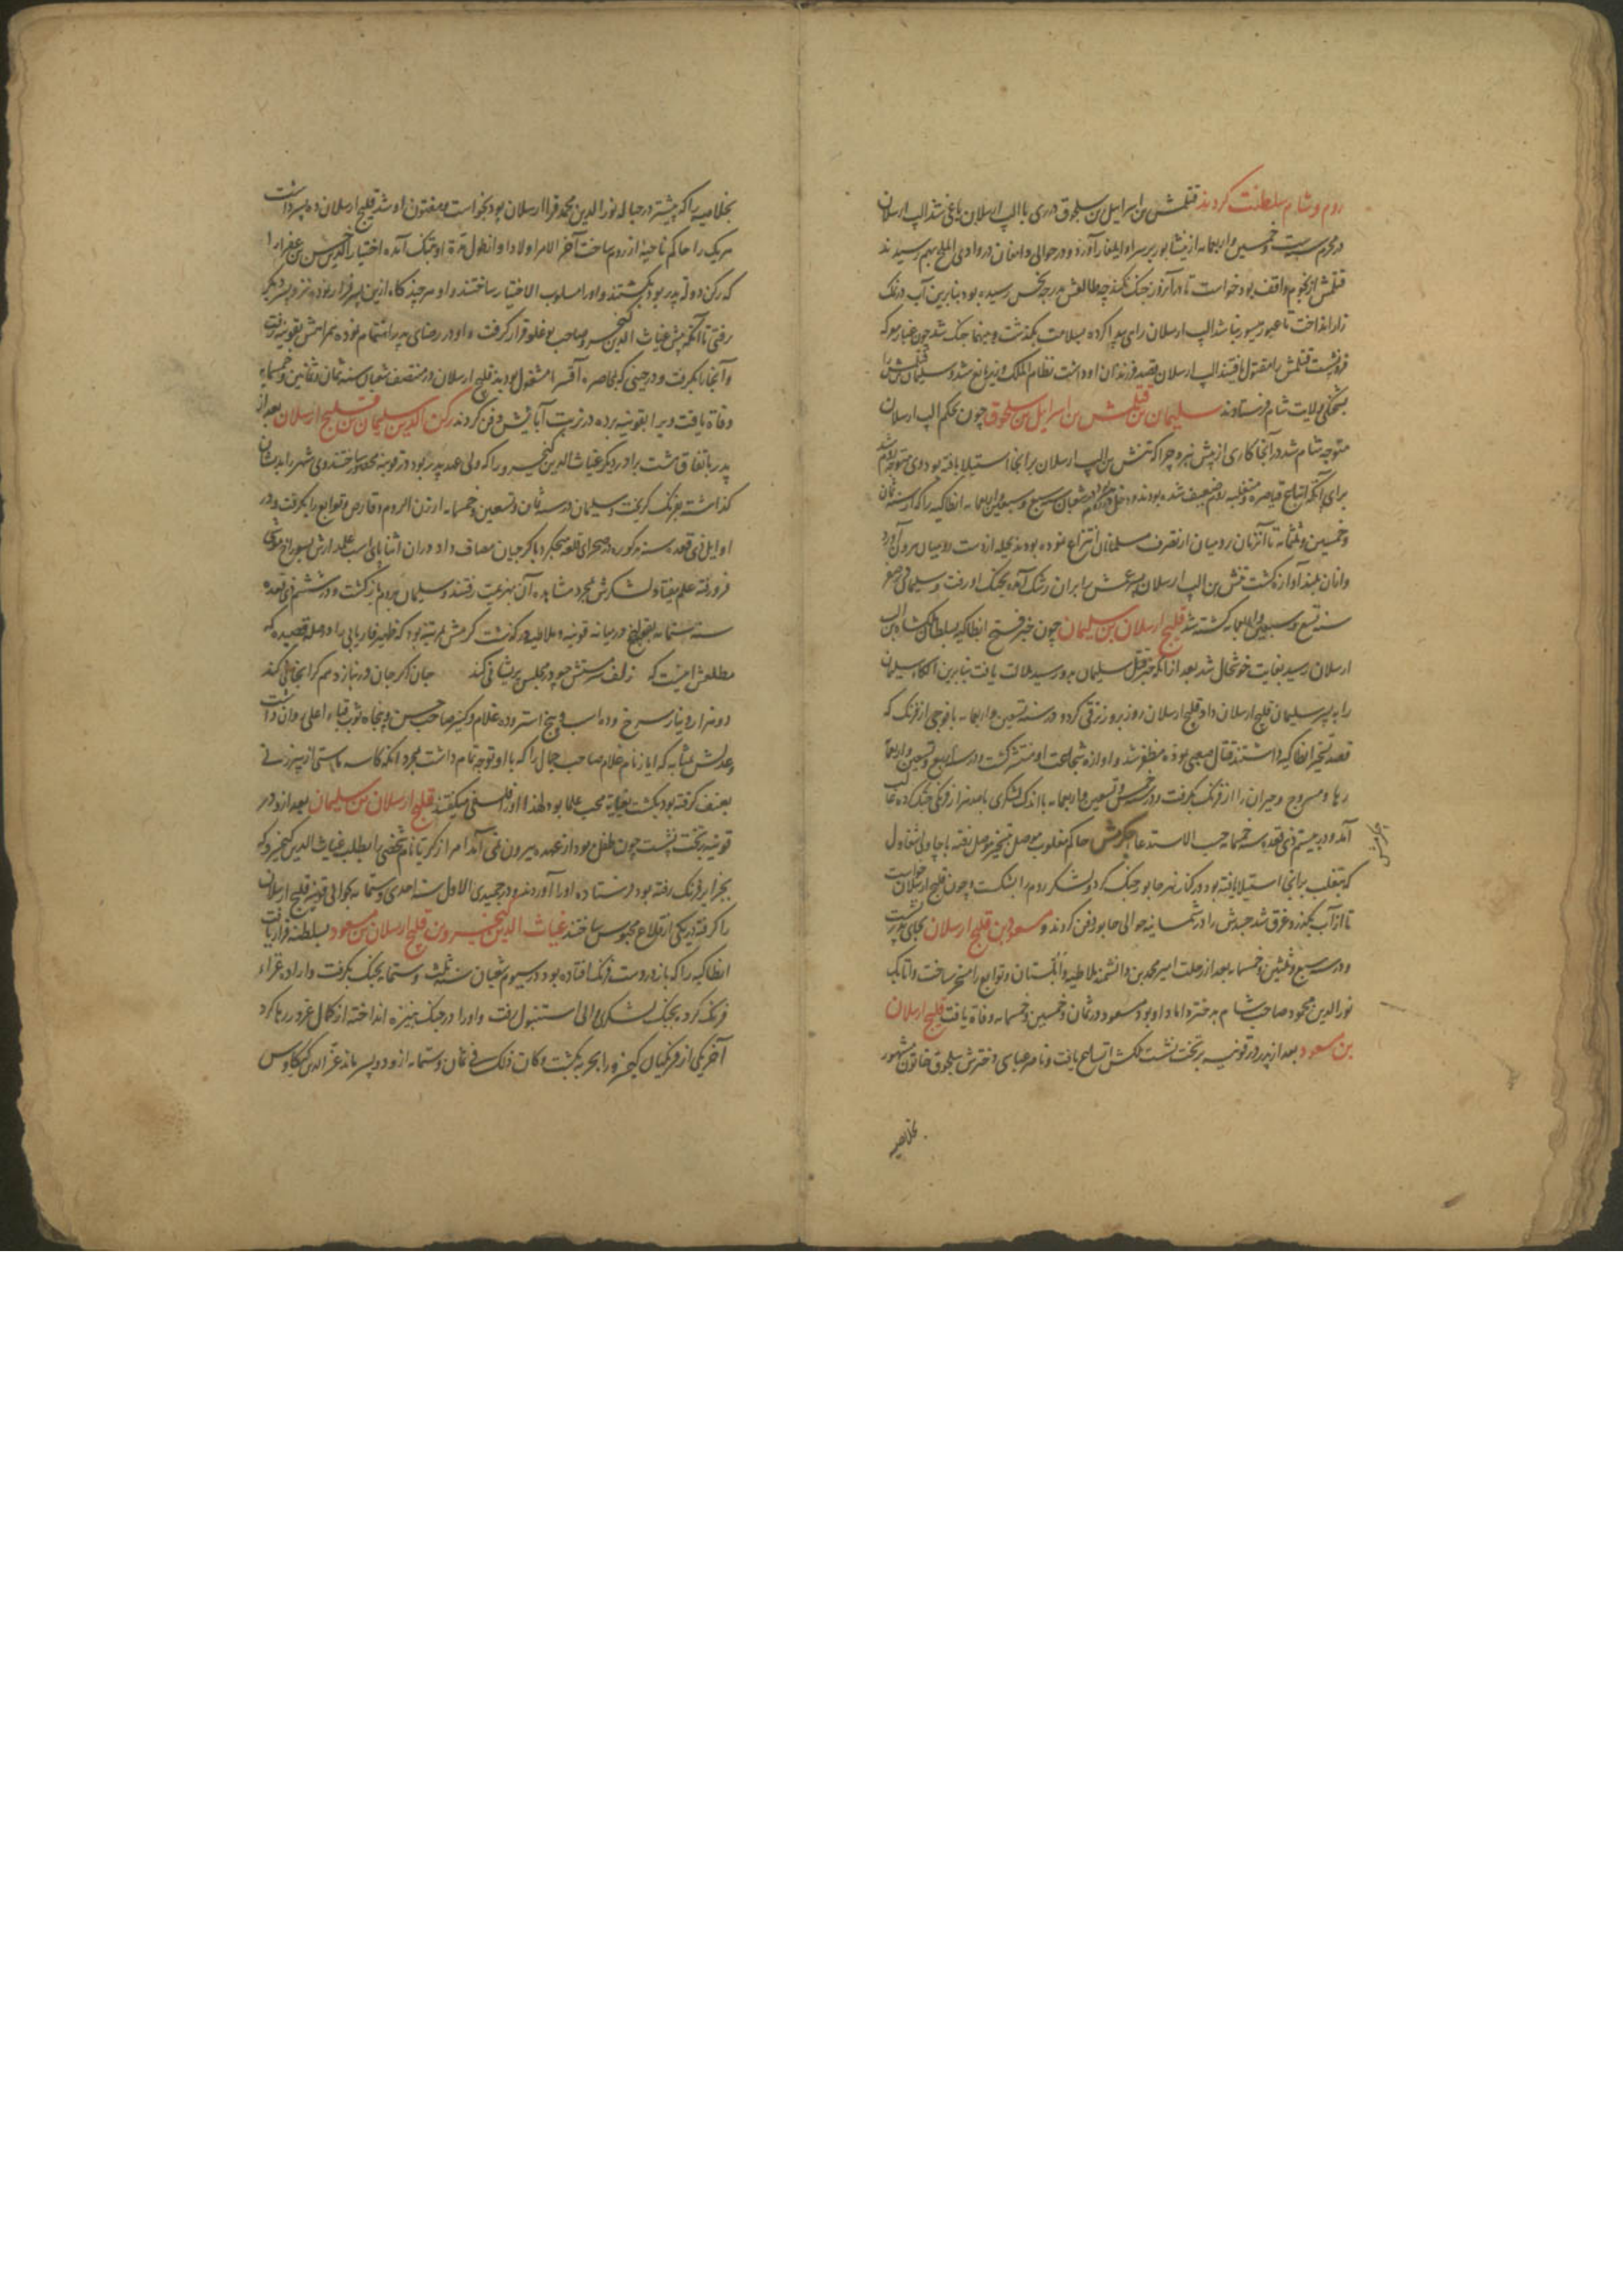 روم و شام سلطنت کردند قتلمش بن اسرائیل بن سلجوق در ری با الپ ارسلان یاغی شد الپ ارسلان
در محرم سنه ست و خمسین و اربعمایه از نیشابور بر سر او ایلغار آورد و در حوالی دامغان در وادی الملح بهم رسیدند
قتلمش از نجوم واقف بود خواست تا در آنروز جنک نکند چه طالعش بدرجه نحس رسیده بود بنابرین آب در نمک
زار انداخت تا عبور میسور نباشد الپ ارسلان راهی پیدا کرده بسلامت بگذشت و جنک شد چون غبار معرکه
فرو نشست قتلمش را مقتول یافتند الپ ارسلان قصد فرزندان او داشت نظام الملک وزیر مانع شد و سلیمان بن قتلمش را
بشحنکی ولایت شام فرستادند سلیمان بن قتلمش بن اسرائیل بن سلجوق چون بحکم الپ ارسلان
متوجه شام شد در آنجا کاری از پیش نبرد چرا که تتش بن الپ ارسلان بر آنجا استیلا یافته بود وی متوجه روم شد
برای آنکه قیاصره روم ضعیف شده بودند و در شعبان سنه سبع و سبعین و اربعمایه انطاکیه را که از سنه ثمان
و خمسین و ثلثمایه تا آنزمان رومیان از تصرف مسلمانان انتزاع نموده بودند بحیله از دست رومیان بیرون آورد
و آنان بلند آوازه کشت تتش بن الپ ارسلان بر آن رشک آمده بجنک او رفت و سلیمان در صفر
سنه تسع و سبعین و اربعمایه کشته شد قلیج ارسلان بن سلیمان چون خبر فتح انطاکیه بسلطان ملکشاه بن الپ
ارسلان رسید بغایت خوشحال شد بعد از آن که خبر قتل سلیمان بدو رسید ملالت یافت بنابرین الکاء سلیمان
را به پسر سلیمان قلیج ارسلان داد و قلیج ارسلان روز بروز ترقی کرد و در سنه تسعین و اربعمایه با فوجی از فرنک که
قصد تسخیر انطاکیه داشتند قتال صعبی نموده مظفر شد و اوازه شجاعت او منتشر کشت و در سنه اربع و تسعین و اربعمایه
رها و سروج و حیران را از فرنک بگرفت و در سنه خمس و تسعین و اربعمایه با اندک لشکری با صد هزار فرنکی جنک کرده غالب
آمد و در بیستم ذی قعده سنه خمسمایه حسب الاستدعا جکرمش حاکم مغلوب موصل بتسخیر موصل رفته با چاولی سقاول
که بتغلب بر آنجا استیلا یافته بود در کنار نهر خابور جنک کرد و لشکر روم را شکست و چون قلیج ارسلان خواست
تا از آب بگذرد غرق شد جسدش را در شمسانیه حوالی خابور دفن کردند و مسعود بن قلیج ارسلان بجای پدر نشست
و در سنه سبع و ثلثین و خمسمایه بعد از رحلت امیر محمد بن دانشمند ملاطیه و ابلستان و توابع را مسخر ساخت و اتابک
نورالدین محمود صاحب شام بدختر داماد او بود مسعود در ثمان و خمسین و خمسمایه وفاة یافت قلیج ارسلان
بن مسعود بعد از پدر در قونیه بر تخت نشست ملکش اتساع یافت و ناصر عباسی دخترش سلجوق خاتون مشهور
جکرمش
بخلاصیه
بخلاصیه را که پیشتر در حباله نورالدین محمد قرا ارسلان بود بخواست و مفتون او شد قلیج ارسلان ده پسر داشت
هر یک را حاکم ناحیهٔ از روم ساخت آخر الامر اولاد او از طول مدة او بتنک آمده اختیار الدین حسن بن غفرا را
که رکن دولة پدر بود بکشتند و او را مسلوب الاختیار ساختند و او هر چند کاه از این پسر فرار نموده نزد پسر دیکر
رفتی تا آنکه پیش غیاث الدین کیخسرو صاحب بوغلو قرار کرفت و او در رضای پدر اهتمام نموده همراهش بقونیه رفت
و آنجا را بکرفت و در حینی که بمحاصره آقسرا مشغول بودند قلیج ارسلان در منتصف شعبان سنه ثمان و ثمانین و خمسمایه
وفاة یافت و ویرا بقونیه برده در تربت آبایش دفن کردند رکن الدین سلیمان بن قلیج ارسلان بعد از
پدر باتفاق هشت برادر دیکر غیاث الدین کیخسرو را که ولی عهد پدر بود در قونیه محصور ساختند وی شهر را بدیشان
کذاشته بفرنک کریخت و سلیمان در سنه ثمان و تسعین و خمسمایه ارزن الروم و قارص و توابع را بکرفت و در
اوایل ذی قعده سنه مذکوره در صحرای قلعه میجنکرد با کرجیان مصاف داد در آن اثنا پای اسب علمدارش بسوراخ موشی
فرو رفته علم بیفتاد و لشکرش بمجرد مشاهده آن بهزیمت رفتند و سلیمان بروم بازکشت و در ششم ذی قعده
سنه ستمایه بقولنج در میانه قونیه و ملاطیه درکذشت کرمش بمرتبه بود که ظهیر فاریابی را در صله قصیده که
مطلعش اینست که زلف سرمستش چو در مجلس پریشانی کند جان اکر جان در نبازد هم کرانجانی کند
دو هزار دینار سرخ و ده اسب و پنج استر و ده غلام و کنیز صاحب حسن و پنجاه ثوب قباء اعلی و ان داشت
عدلش بمثابه که ایاز نام غلام صاحب جمال را که با او توجه تمام داشت بمجرد آنکه کاسه ماستی از پیرزنی
بعنف کرفته بود بکشت بغایة محب علما بود لهذا او را فلسفی میکفتند قلیج ارسلان بن سلیمان بعد از پدر در
قونیه بر تخت نشست چون طفل بود از عهده بیرون نمی آمد امرا زکریا نام شخصی را بطلب غیاث الدین کیخسرو که
بجزایر فرنک رفته بود فرستاده او را آوردند و در جمیدی الاول سنه احدی و ستمایه بحوالی قونیه قلیج ارسلان
را کرفته در یکی از قلاع محبوس ساختند غیاث الدین کیخسرو بن قلیج ارسلان بن مسعود بسلطنة قرار یافت
انطاکیه را که باز در دست فرنک افتاده بود در سیوم شعبان سنه ثلث و ستمایه بجنک بکرفت و اراده غزاء
فرنک کرده بجنک لشکری والی استنبول رفت و او را در جنک بنیزه انداخته از کمال غرور رها کرد
آخر یکی از فرنکیان کیخسرو را بحربه بکشت و کان ذلک فی ثمان و ستمایه از او دو پسر ماند عز الدین کیکاوس